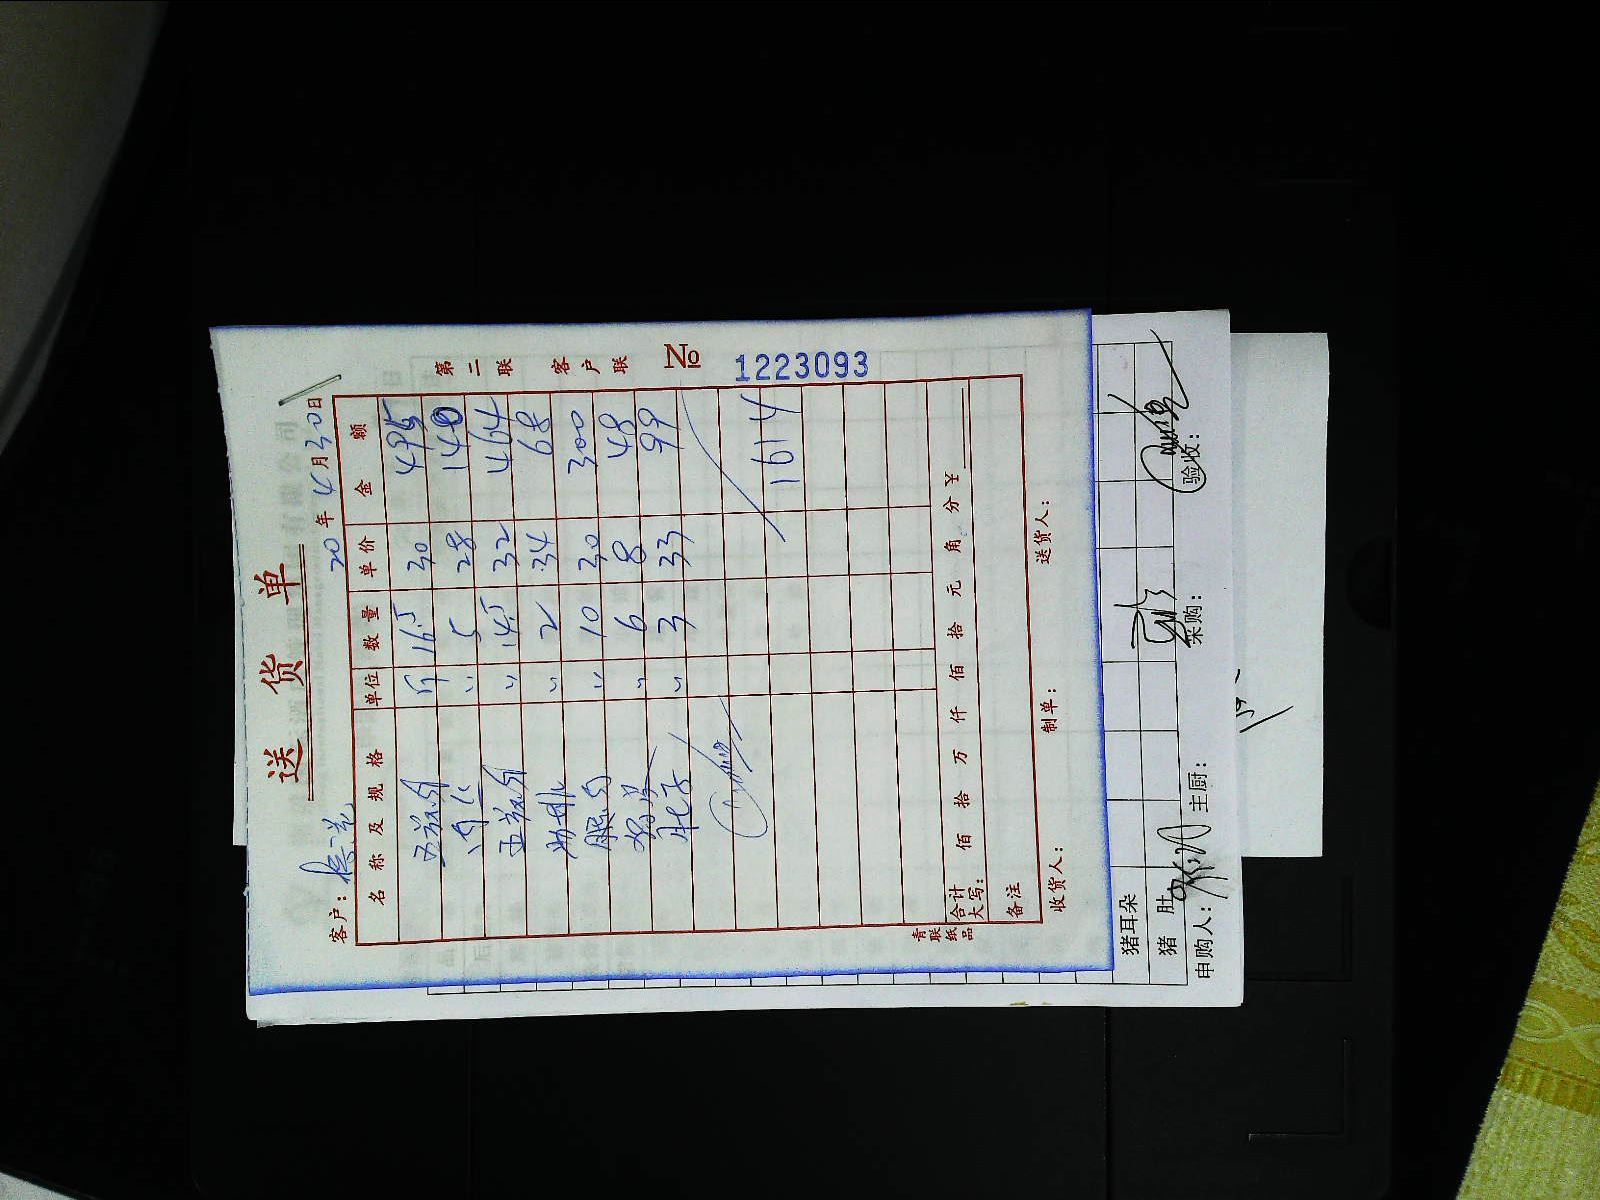 送货单
客户：
20 年 4月30日
第二联 客户联 № 1223093
名称及规格 单位 数量 单价 金额
五花肉 斤 16.5 30 495
肉 〃 5 28 140
五花肉 〃 14.5 32 464
排 〃 2 34 68
腿肉 〃 10 30 300
〃 6 8 48
肚子 〃 3 33 99
1614
合计大写： 佰 拾 万 仟 佰 拾 元 角 分 ¥
备注
收货人： 制单： 送货人：
青联纸品
猪耳朵
猪肚
申购人： 主厨： 采购： 验收：